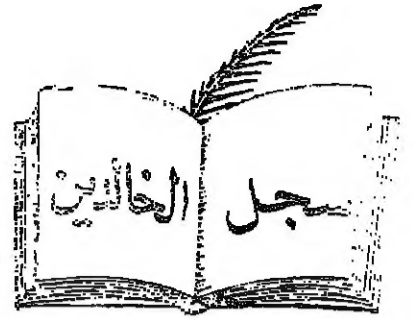 سجل الخالدين